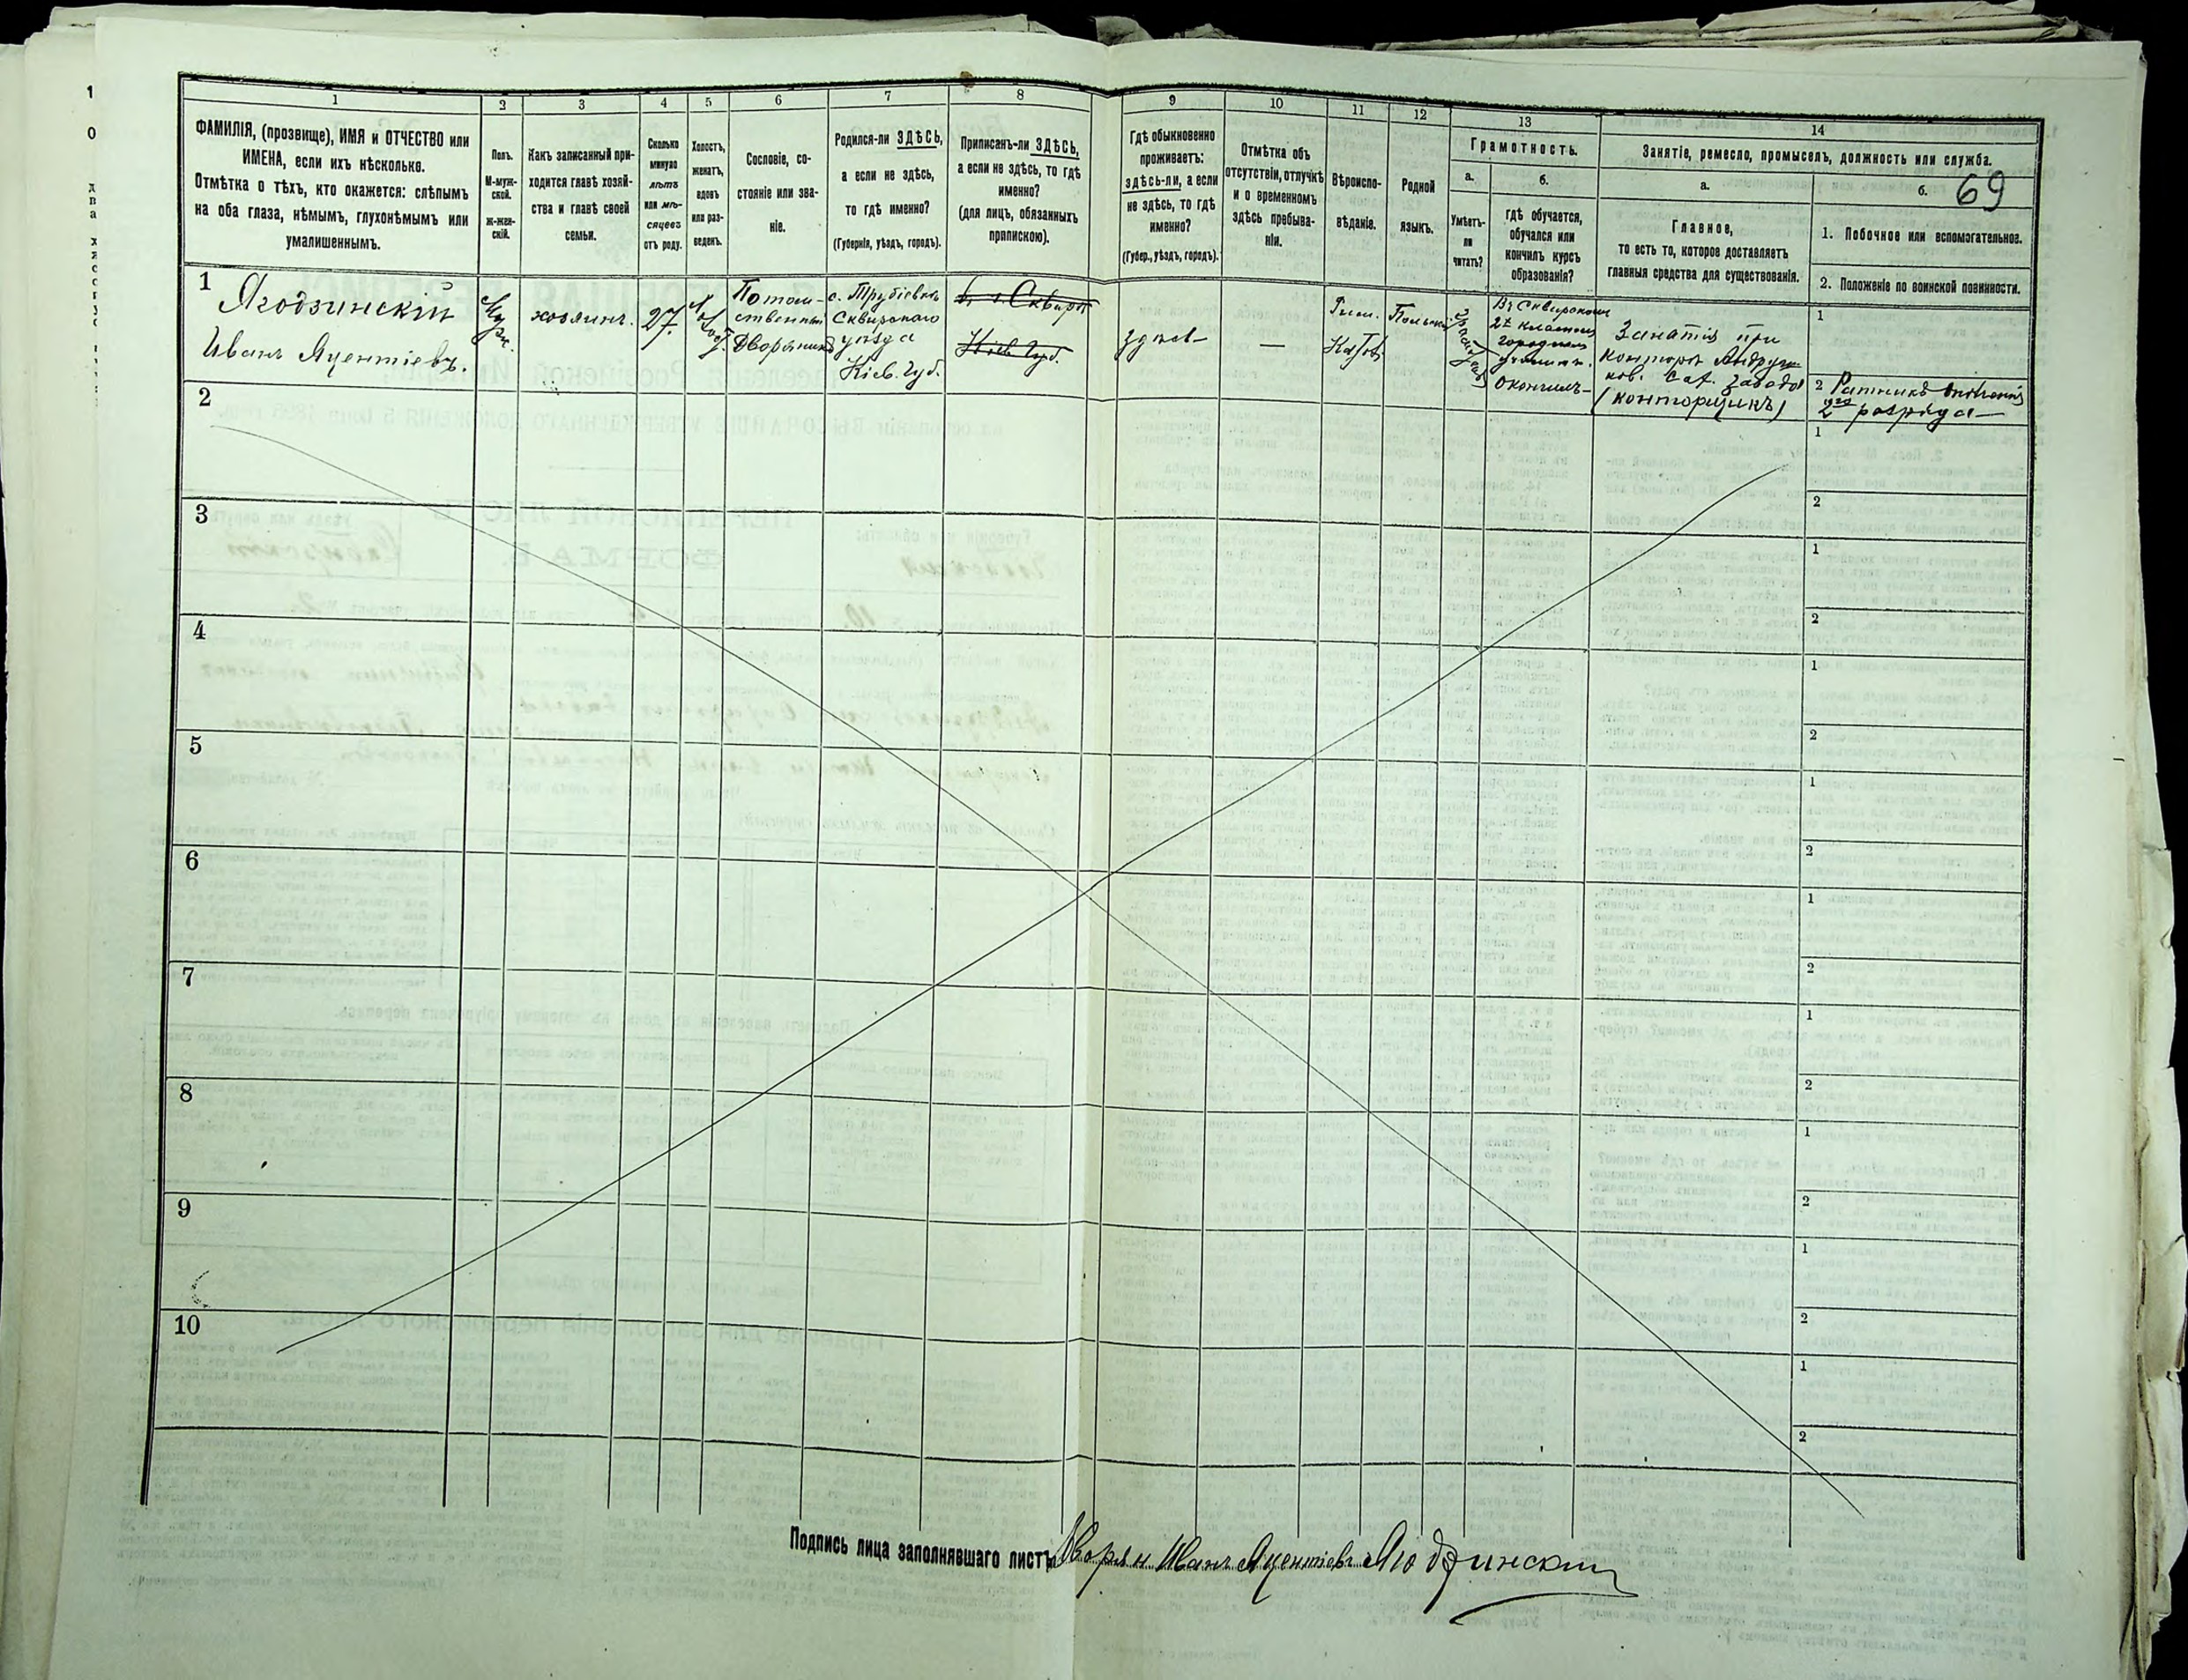 1
2
3
4
5
6
7
8
9
10
11
12
13
14
ФАМИЛІЯ, (прозвище), ИМЯ и ОТЧЕСТВО или
ИМЕНА, если ихъ нѣсколько.
Отмѣтка о тѣхъ, кто окажется: слѣпымъ
на оба глаза, нѣмымъ, глухонѣмымъ или
умалишеннымъ.
Полъ.
М-муж-
ской.
Ж-жен-
скій.
Какъ записанный при-
ходится главѣ хозяй-
ства и главѣ своей
семьи.
Сколько
минуло
лѣтъ
или мѣ-
сяцевъ
отъ роду.
Холостъ,
женатъ,
вдовъ
или раз-
веденъ.
Сословіе, со-
стояніе или зва-
ніе.
Родился-ли ЗДѢСЬ,
а если не здѣсь,
то гдѣ именно?
(Губернія, уѣздъ, городъ).
Приписанъ-ли ЗДѢСЬ,
а если не здѣсь, то гдѣ
именно?
(для лицъ, обязанныхъ
припискою).
Гдѣ обыкновенно
проживаетъ:
здѣсь-ли, а если
не здѣсь, то гдѣ
именно?
(Губер., уѣздъ, городъ).
Отмѣтка объ
отсутствіи, отлучкѣ
и о временномъ
здѣсь пребыва-
ніи.
Вѣроиспо-
вѣданіе.
Родной
языкъ.
Грамотность.
а.
Умѣетъ-
ли
читать?
б.
гдѣ обучается,
обучался или
кончилъ курсъ
образованія?
Занятіе, ремесло, промыселъ, должность или служба.
а.
Главное,
то есть то, которое доставляетъ
главныя средства для существованія.
б.
69
1. Побочное или вспомогательное.
2. Положеніе по воинской повинности.
1
Ягодзинскій
Иванъ Яцентіевъ.
Муж.
хозяинъ.
27.
Холост.
Потом-
ственный
Дворянинъ
с. Трубіевка
Сквирскаго
уѣзда
Кіев. губ.
г. Сквира
Кіев. Губ.
здѣсь
—
Рим.
Кат.
Польск.
Въ Сквирском
2х классном
городском
училищѣ.
окончилъ
Занятія при
конторѣ Андруш
ков. Сах. завода
(конторщикъ)
1
2 Ратникъ ополченія
2го разряда
2
1
2
3
1
2
4
1
2
5
1
2
6
1
2
7
1
2
8
1
2
9
1
2
10
1
2
Подпись лица заполнявшаго листъ Дворян. Иванъ Яцентіевъ Ягодзинскій